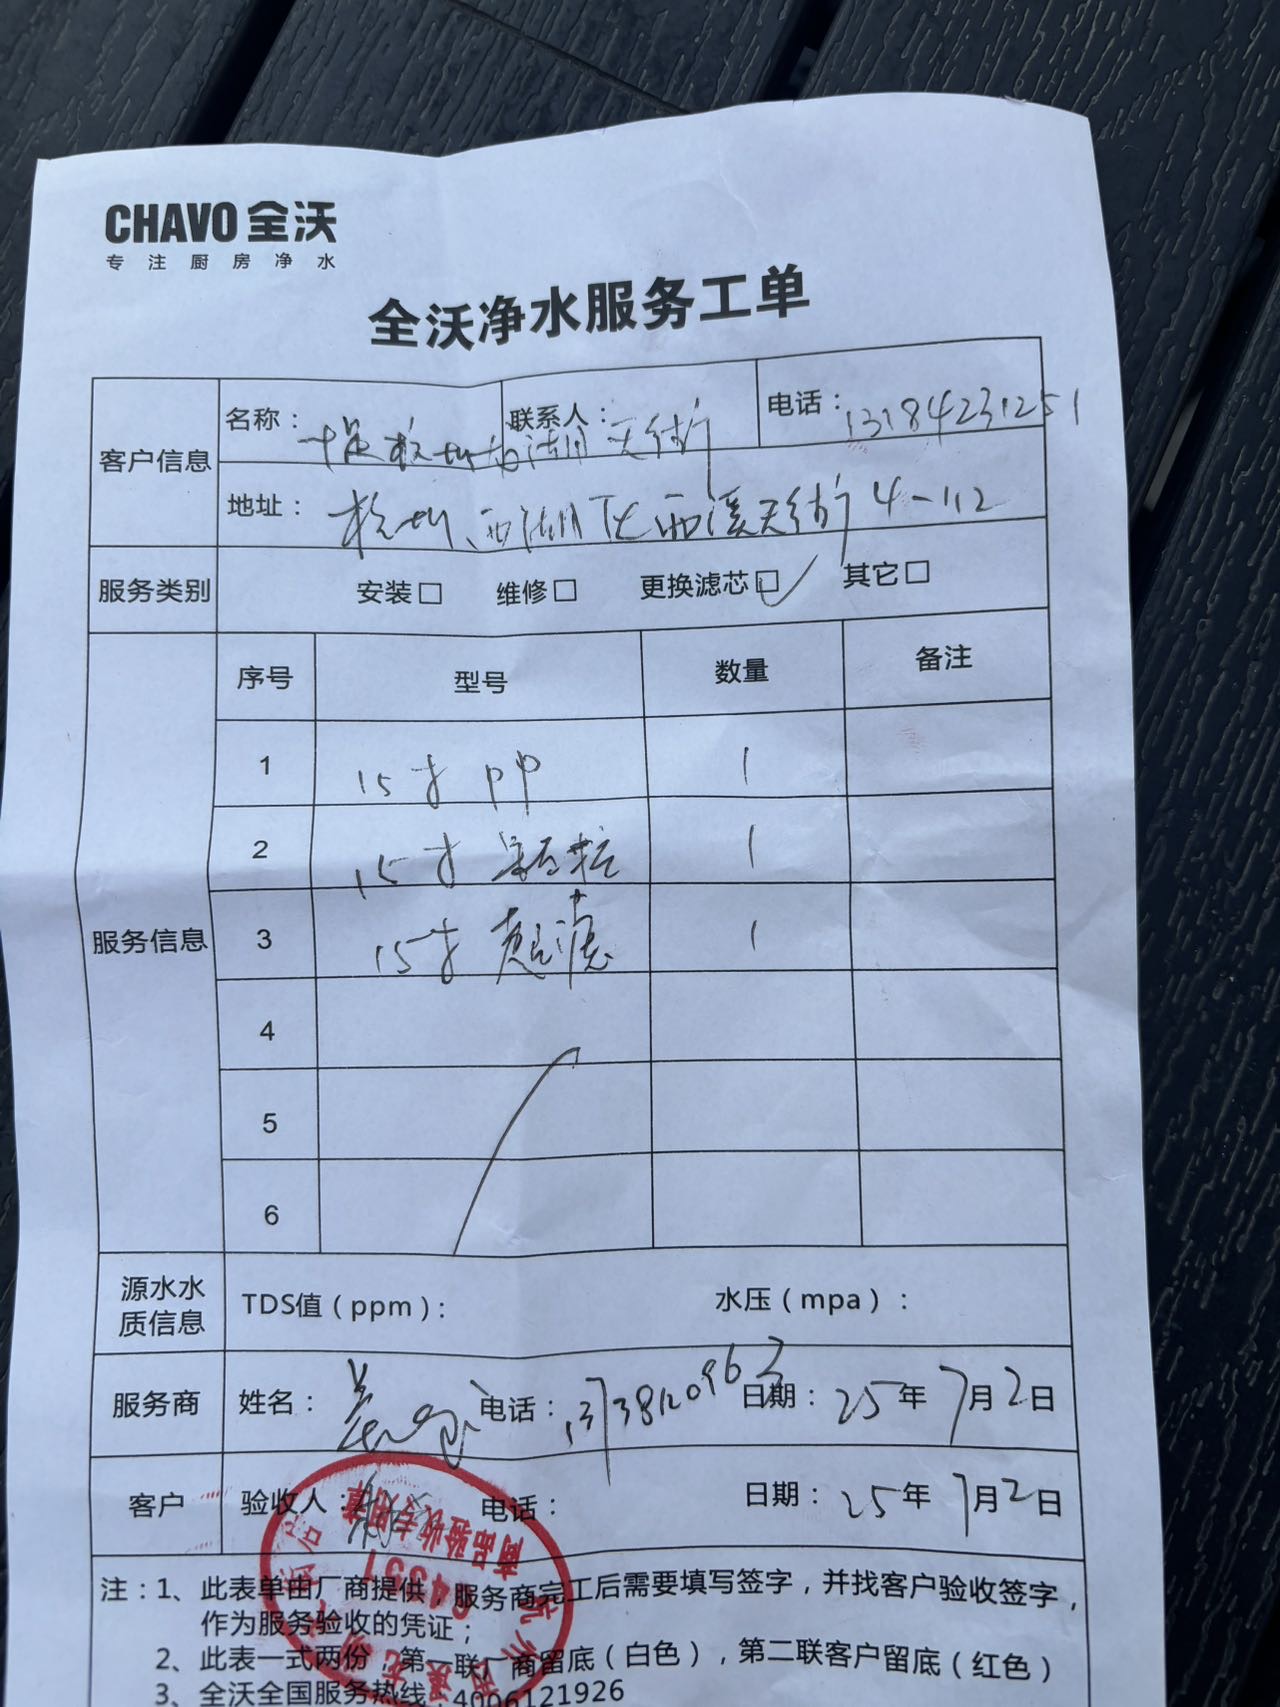 CHAVO 全沃
专注厨房净水
全沃净水服务工单
客户信息
名称： 联系人： 电话：13184231251
地址：杭州、西湖区西溪天街 4-112
服务类别 安装□ 维修□ 更换滤芯□✓ 其它□
服务信息
序号 型号 数量 备注
1 15寸 PP 1
2 15寸 颗粒 1
3 15寸 超滤 1
4
5
6
源水水质信息 TDS值（ppm）： 水压（mpa）：
服务商 姓名： 电话： 日期：25年7月2日
客户 验收人： 电话： 日期：25年7月2日
商品验收专用章
64351
注：1、此表单由厂商提供，服务商完工后需要填写签字，并找客户验收签字，
作为服务验收的凭证；
2、此表一式两份，第一联厂商留底（白色），第二联客户留底（红色）
3、全沃全国服务热线：4006121926